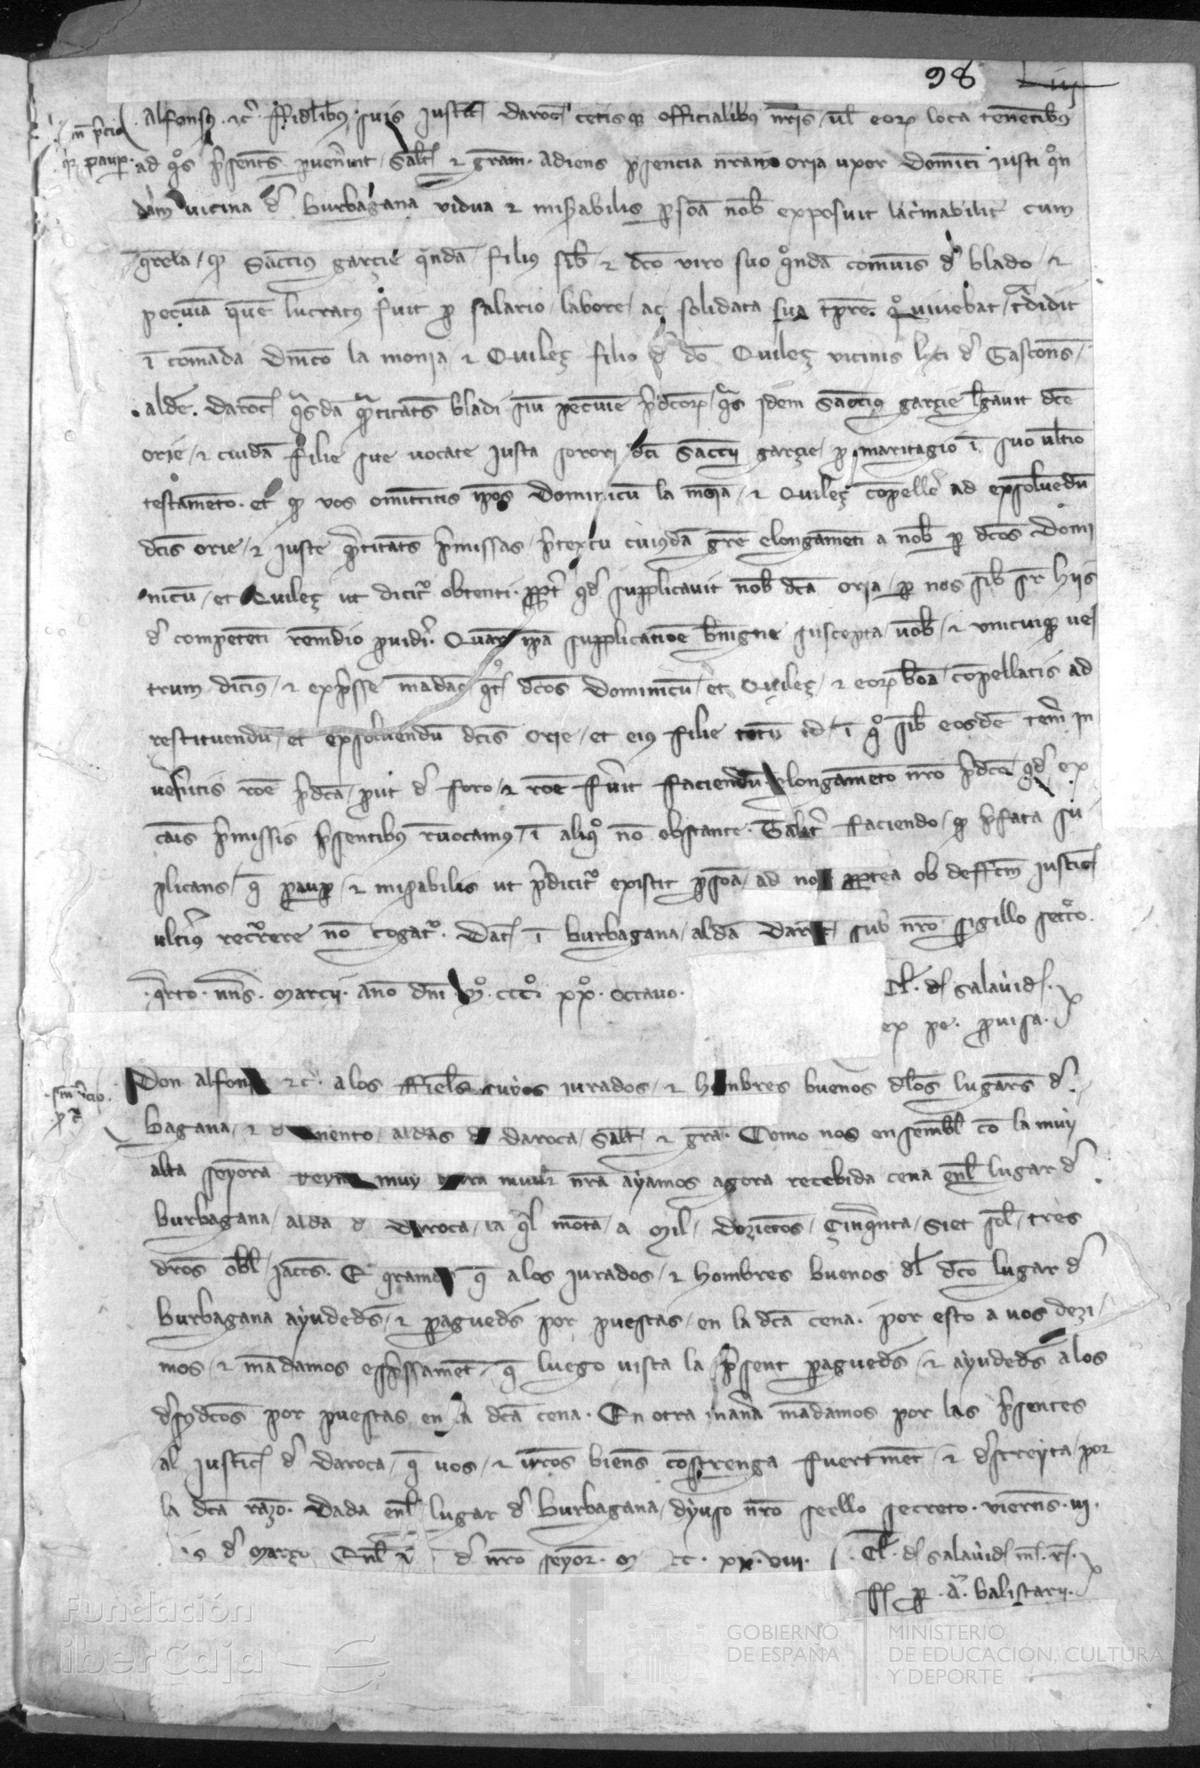 98
Alfonsus etc. Fidelibus suis Justicie Daroce ceterisque officialibus nostris vel eorum loca tenentibus
sine precio
quia pauper
ad quos presentes pervenerint salutem et graciam. Adiens presencia nostram Oria uxor Dominici Justi quon
dam vicina de Burbagena vidua et miserabilis persona nobis exposuit lacrimabiliter cum
querela quod Sanccius Garcie quondam filius sibi et dicto viro suo quondam comunis de blado et
pecunia quem lucratus fuit pro salario labore ac solidata sua tempore quo vivebat tradidit
in comanda Dominico la Monja et Quilez filio de don Quilez vicinis loci de Gascones
aldee Daroce quasdam quantitates bladi sive peccunie predictorum quas idem Sanccius Garcie legavit dicte
Orie et cuidam filie sue vocate Justa sorori dicti Sanccii Garcie pro maritagio in suo ultimo
testamento. Et quod vos omittitis ipsos Dominicum la Monja et Quilez compellere ad exsolvendum
dictis Orie et Juste quantitates premissas pretextu cuiusdam gracie elongamenti a nobis per dictos Domi
nicum et Quilez ut dicitur obtenti. Propter quod supplicavit nobis dicta Oria per nos sibi super hiis
de competenti remedio provideri. Quare ipsa supplicatione benigne suscepta vobis et unicuique ves
trum dicimus et expresse mandamus quatenus dictos Dominicum et Quilez et eorum bona compellatis ad
restituendum et exsolvendum dictis Orie et eius filie totum id in quo sibi eosdem teneri in
veneritis racione predicta prout de foro et racione fuerit faciendum elongamento nostro predicto quod ex
causis premissis presentibus revocamus in aliquo non obstante. Taliter faciendo quod prefata su
plicans que pauper et miserabilis ut predicitur existit persona ad nos propterea ob deffectum justicie
ulterius recurrere non cogatur. Data in Burbagena aldea Daroce sub nostro sigillo secreto
quarto nonas Marcii anno Domini Mº CCCº XXº octavo.
Cl. de Salavid.
ex pe. provisa.
Don Alfonso etc. a los fieles suyos jurados et hombres buenos de los lugares de
sine precio
Bagena et d nento aldeas de Daroca salut et gracia. Como nos ensembl con la muy
alta seyora reyna muy cara muller nuestra ayamos agora recebida cena en el lugar de
Burbagena aldea de Daroca la qual monta a mil dozientos cinquanta siet solidos tres
dineros obol. jacceses. E queramos que a los jurados et hombres buenos del dicto lugar de
Burbagena ayudedes et paguedes por puestas en la dicta cena. Por esto a vos dezi
mos et mandamos espressament que luego vista la present paguedes et ayudedes a los
desusdictos por puestas en la dicta cena. En otra manera mandamos por las presentes
al justicia de Daroca que vos et vuestros bienes costrenga fuertment et destreyta por
la dicta razon. Dada en el lugar de Burbagena dyuso nostro seello secreto viernes III
de março de nostro seyor M CC XX VIII
Cl. de Salavid
Ff. per A. Balistarii
Fundación
iberCaja
GOBIERNO
DE ESPAÑA
MINISTERIO
DE EDUCACIÓN, CULTURA
Y DEPORTE